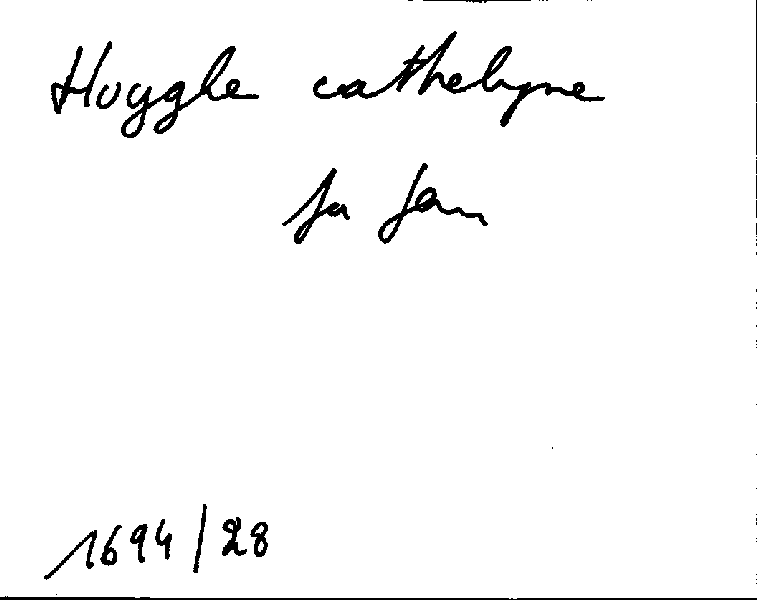 Huyghe cathelyne
fa Jan
1694/28